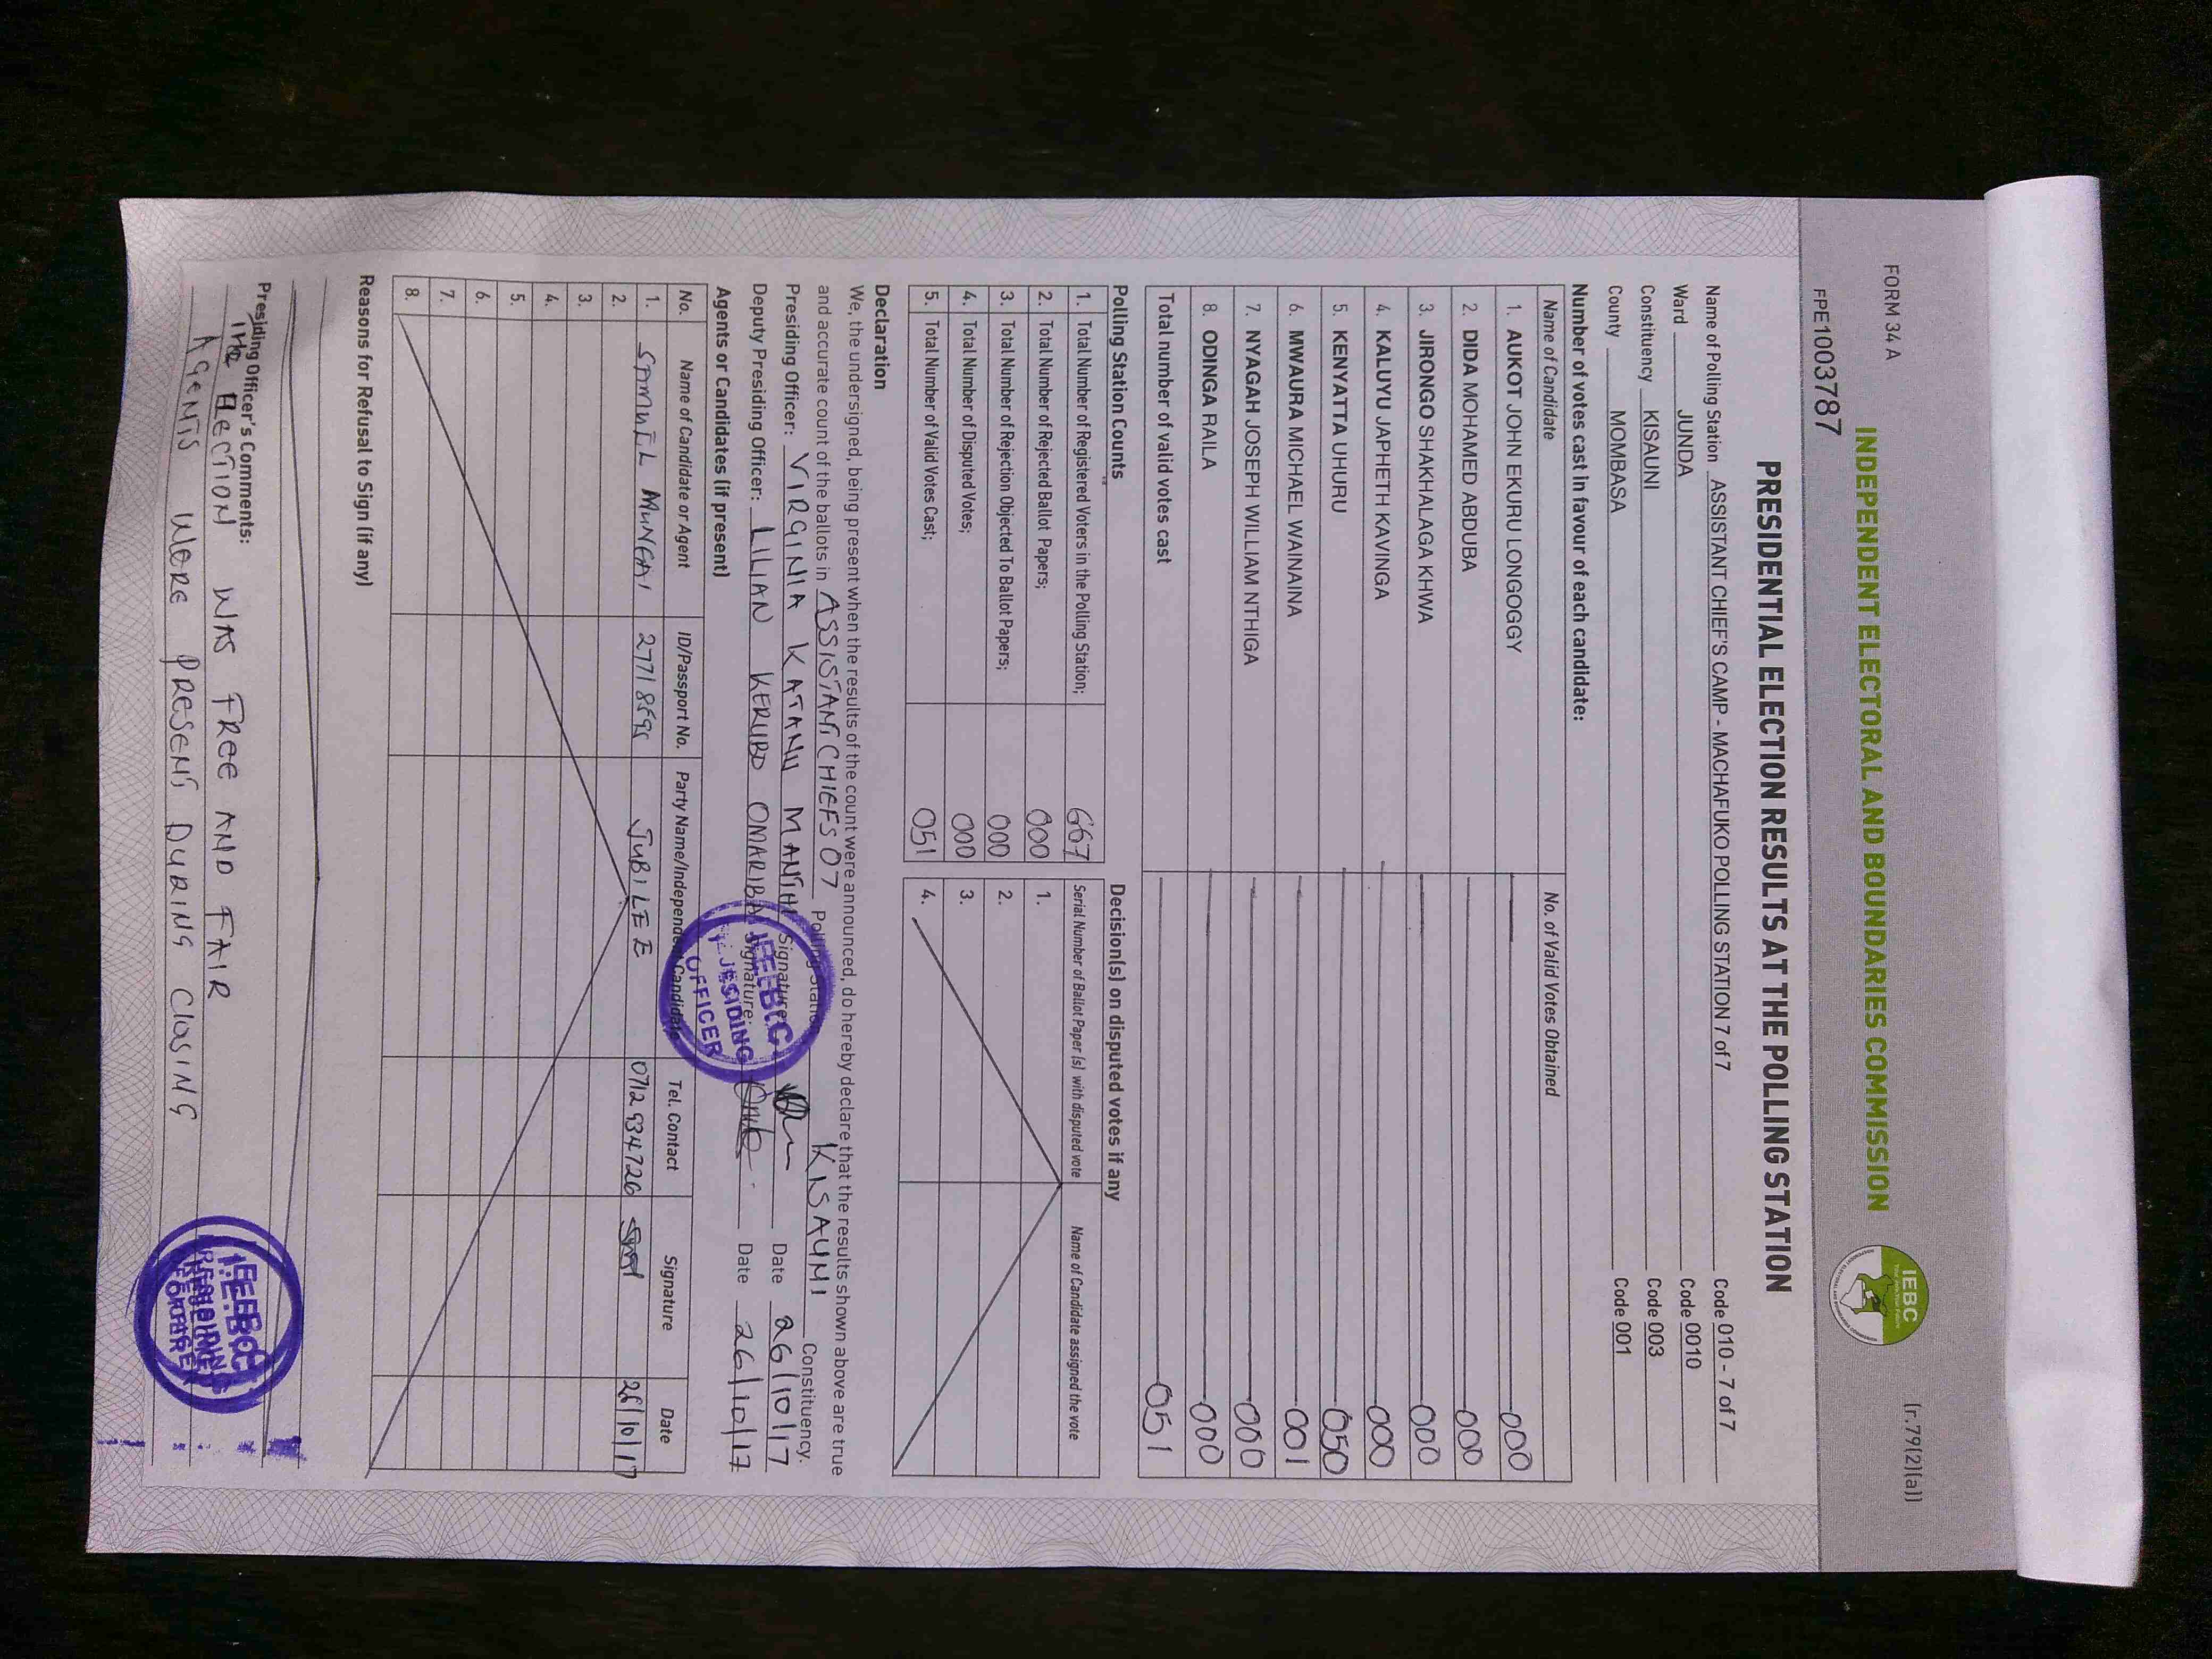 FORM 34 A
[r.79(2)(a)]
INDEPENDENT ELECTORAL AND BOUNDARIES COMMISSION
IEBC
FPE1003787
PRESIDENTIAL ELECTION RESULTS AT THE POLLING STATION
Name of Polling Station ASSISTANT CHIEF'S CAMP - MACHAFUKO POLLING STATION 7 of 7 Code 010 - 7 of 7
Ward JUNDA Code 0010
Constituency KISAUNI Code 003
County MOMBASA Code 001
Number of votes cast in favour of each candidate:
Name of Candidate No. of Valid Votes Obtained
1. AUKOT JOHN EKURU LONGOGGY 000
2. DIDA MOHAMED ABDUBA 000
3. JIRONGO SHAKHALAGA KHWA 000
4. KALUYU JAPHETH KAVINGA 000
5. KENYATTA UHURU 050
6. MWAURA MICHAEL WAINAINA 001
7. NYAGAH JOSEPH WILLIAM NTHIGA 000
8. ODINGA RAILA 000
Total number of valid votes cast 051
Polling Station Counts
1. Total Number of Registered Voters in the Polling Station; 667
2. Total Number of Rejected Ballot Papers; 000
3. Total Number of Rejection Objected To Ballot Papers; 000
4. Total Number of Disputed Votes; 000
5. Total Number of Valid Votes Cast; 051
Decision(s) on disputed votes if any
Serial Number of Ballot Paper (s) with disputed vote Name of Candidate assigned the vote
1.
2.
3.
4.
Declaration
We, the undersigned, being present when the results of the count were announced, do hereby declare that the results shown above are true
and accurate count of the ballots in ASSISTANT CHIEFS 07 Polling Station KISAUNI Constituency.
Presiding Officer: VIRGINIA KATANU MANTHI Signature: Date 26/10/17
Deputy Presiding Officer: LILIAN KERUBO OMARIBA Signature: Date 26/10/17
Agents or Candidates (if present)
No. Name of Candidate or Agent ID/Passport No. Party Name/Independent Candidate Tel. Contact Signature Date
1. MUNGAI JUBILEE 0712934726 26/10/17
2.
3.
4.
5.
6.
7.
8.
Reasons for Refusal to Sign (if any)
Presiding Officer's Comments:
THE ELECTION WAS FREE AND FAIR
AGENTS WERE PRESENT DURING CLOSING